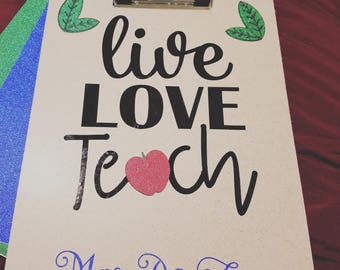 live
LOVE
Teach
Mrs.